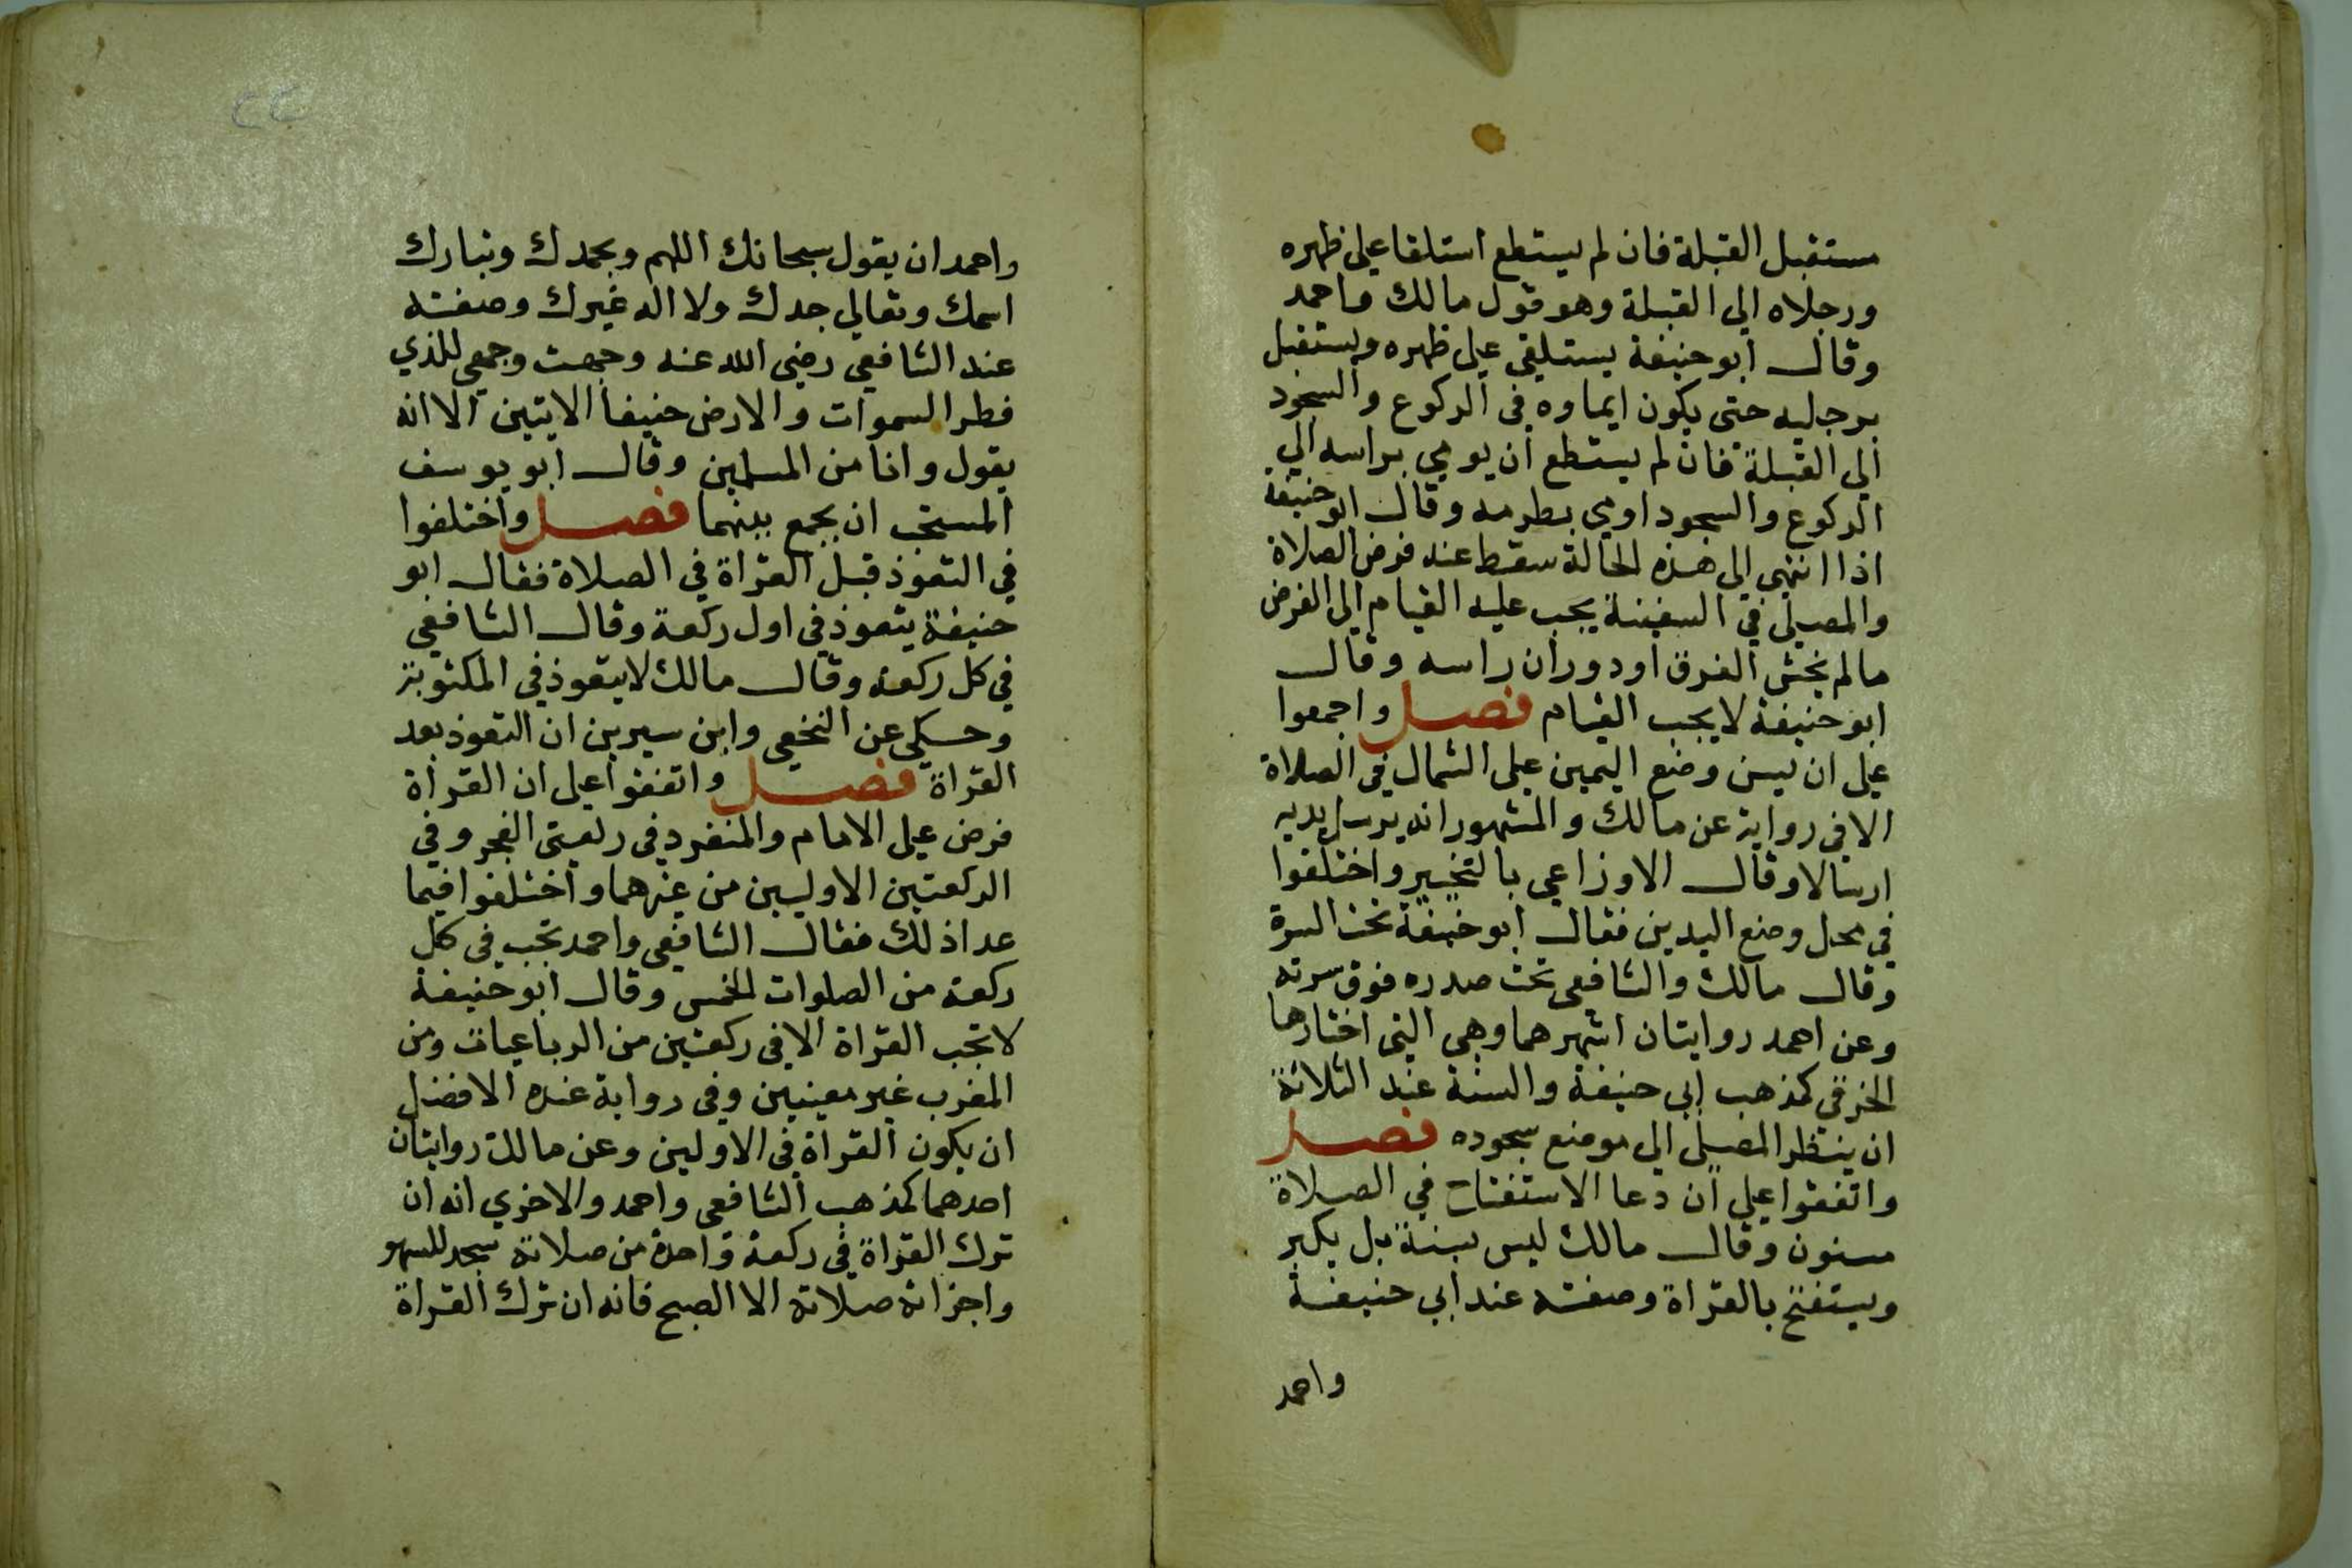 مستقبل القبلة فان لم يستطع استلقا على ظهره
ورجلاه الى القبلة وهو قول مالك واحمد
وقال ابو حنيفة يستلقي على ظهره ويستقبل
برجليه حتى يكون ايماوه في الركوع والسجود
الي القبلة فان لم يستطع ان يومي براسه الي
الركوع والسجود اومي بطرفه وقال ابو حنيفة
اذا انتهي الى هذه الحالة سقط عنه فرض الصلاة
والمصلي في السفينة يجب عليه القيام الى الفرض
مالم يخش الغرق او دوران راسه وقال
ابو حنيفة لا يجب القيام فصل واجمعوا
على ان يسن وضع اليمين على الشمال في الصلاة
الا في رواية عن مالك والمشهور انه يرسل يديه
ارسالا وقال الاوزاعي بالتخيير واختلفوا
في محل وضع اليدين فقال ابو حنيفة تحت السرة
وقال مالك والشافعي تحت صدره فوق سرته
وعن احمد روايتان اشهرهما وهي التي اختارها
الخرقي كمذهب ابي حنيفة والسنة عند الثلاثة
ان ينتظر المصلى الى موضع سجوده فصل
واتفقوا على ان دعا الاستفتاح في الصلاة
مسنون وقال مالك ليس بسنة بل يكبر
ويستفتح بالقراة وصفته عند ابي حنيفة
واحمد
٢٢
واحمد ان يقول سبحانك اللهم وبحمدك وتبارك
اسمك وتعالى جدك ولا اله غيرك وصفته
عند الشافعي رضي الله عنه وجهت وجهي للذي
فطر السموات والارض حنيفا الايتين الا انه
يقول وانا من المسلمين وقال ابو يوسف
المستحب ان يجمع بينهما فصل واختلفوا
في التعوذ قبل القراة في الصلاة فقال ابو
حنيفة يتعوذ في اول ركعة وقال الشافعي
في كل ركعة وقال مالك لا يتعوذ في المكتوبة
وحكي عن النخعي وابن سيرين ان التعوذ بعد
القراة فصل واتفقوا على ان القراة
فرض على الامام والمنفرد في ركعتي الفجر وفي
الركعتين الاوليين من غيرهما واختلفوا فيما
عدا ذلك فقال الشافعي واحمد تجب في كل
ركعة من الصلوات الخمس وقال ابو حنيفة
لا تجب القراة الا في ركعتين من الرباعيات ومن
المغرب غير معينين وفي رواية عنده الافضل
ان يكون القراة في الاولين وعن مالك روايتان
احدهما كمذهب الشافعي واحمد والاخري انه ان
ترك القراة في ركعة واحدة من صلاته سجد للسهو
واجزاته صلاته الا الصبح فانه ان ترك القراة